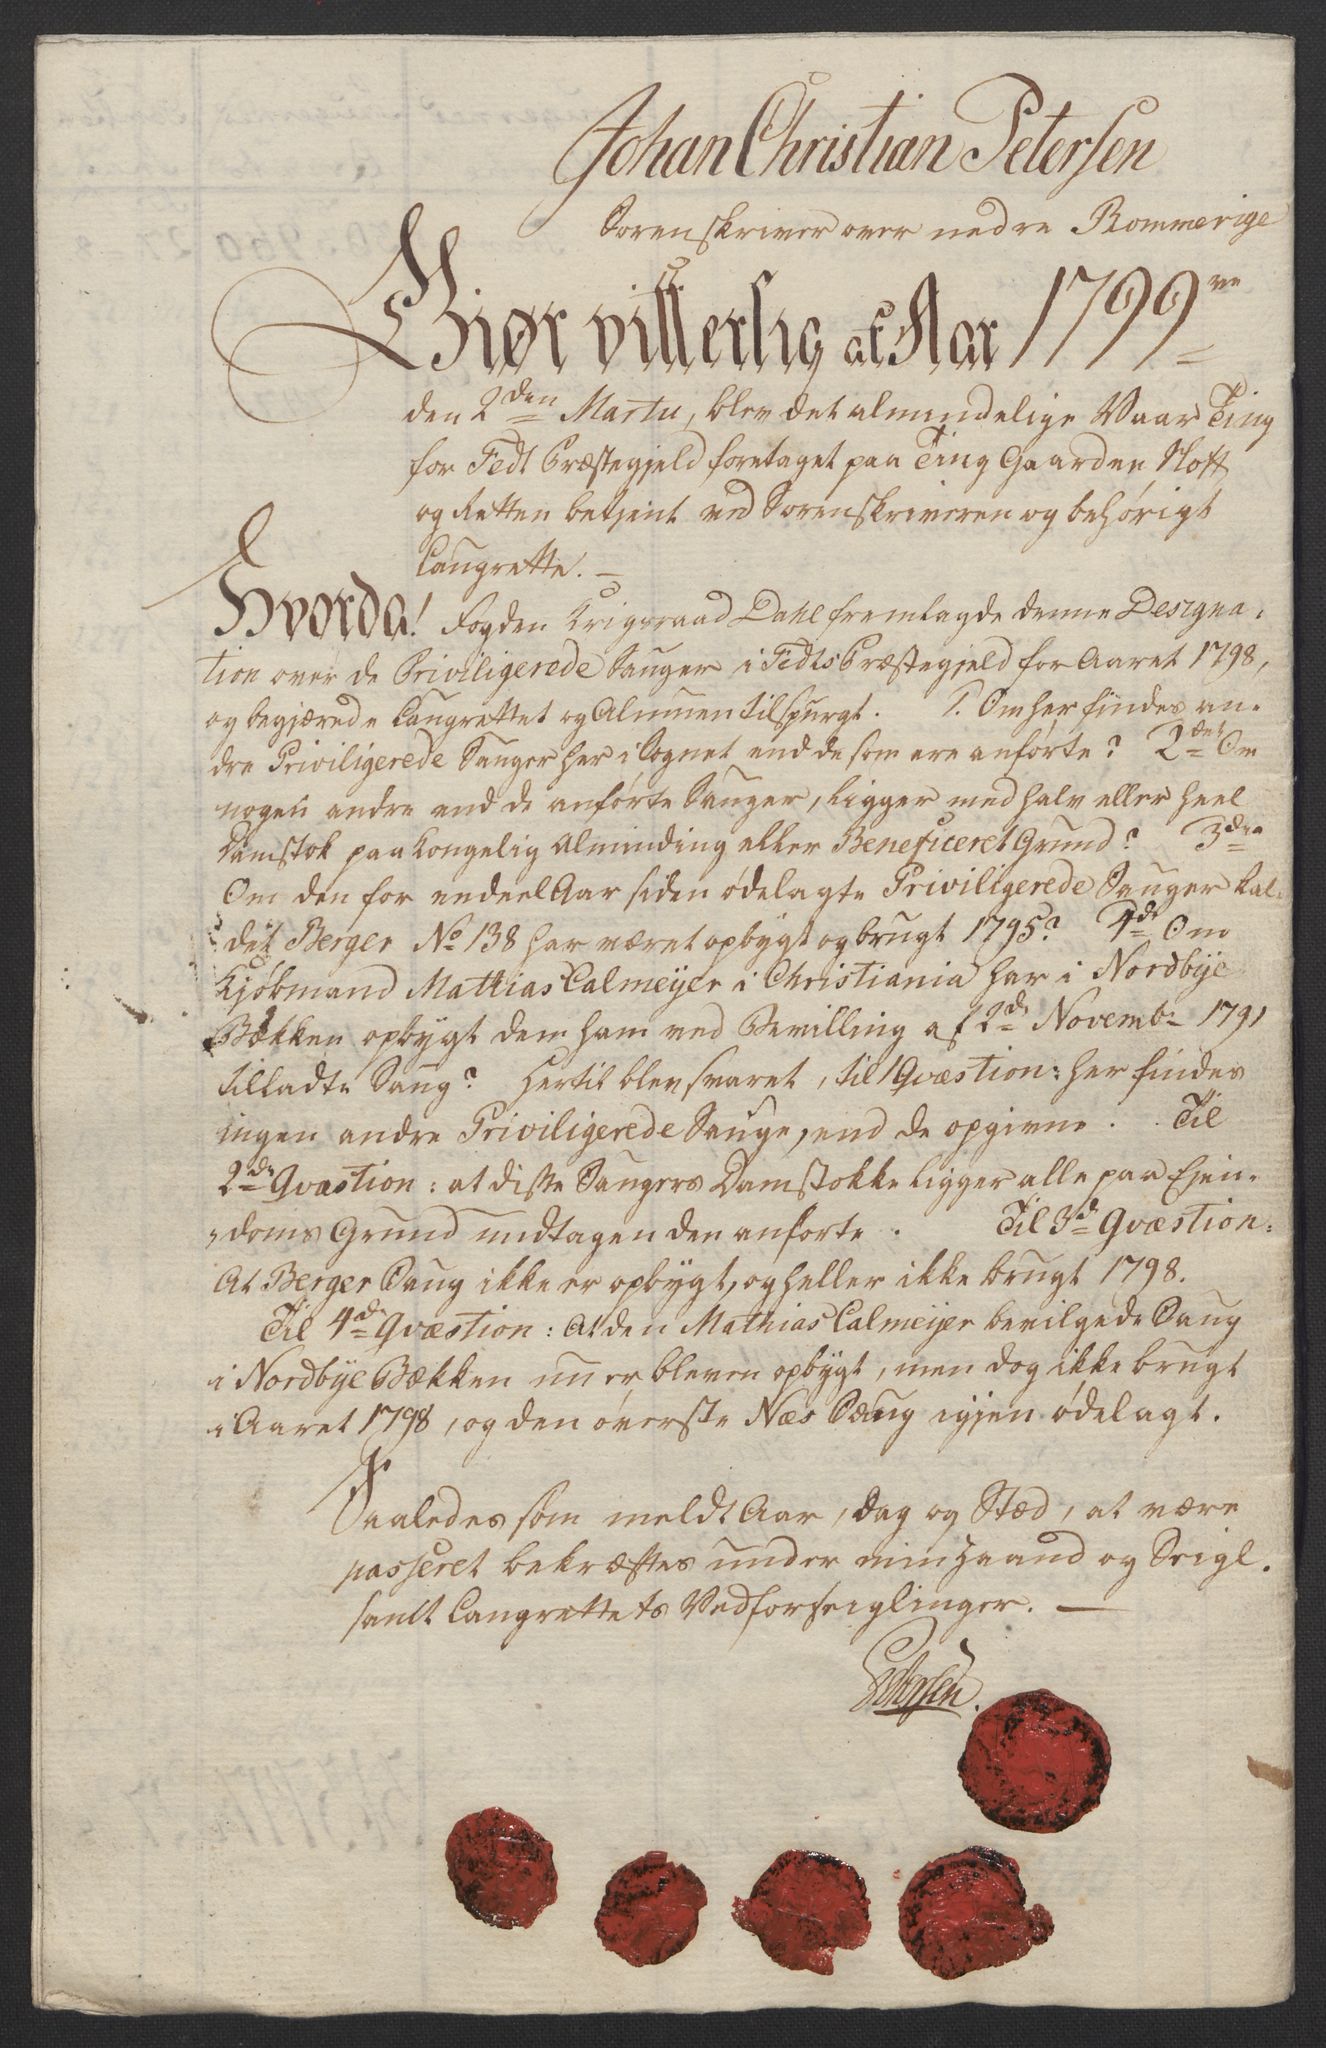 Johan Christian Petersen
Sorenskriver over nedre Rommerige
Giør vitterlig at Aar 1799ve
den 2den Martii, blev det almindelige Vaar Ting
for Fedt Præstegjeld foretaget paa Ting Gaarden
og Retten betjent ved Sorenskriveren og behørigt
Laugrette. —
Hvorda! Fogden Krigsraad Dahl fremlagde denne Designa-
tion over de Priviligerede Sauger i Fedts Præstegjeld for Aaret 1798,
og begjærede Laugrettet og Almuen tilspurgt. 1. Om her findes an-
dre Priviligerede Sauger her i Sognet end de som ere anførte? 2det Om
nogen andre end de anførte Sauger, ligger med halv eller heel
Damstok paa Kongelig Alminding eller Beneficeret Grund? 3die
Om den for endeel Aar siden ødelagte Priviligerede Sauger kal-
det Berger No 138 har været opbygt og brugt 1795? 4de Om
Kjøbmand Mathias Calmeyer i Christiania har i Nordbye
Bækken opbygt dem ham ved Bevilling af 2de Novembr 1791
tilladte Saug? Hertil blev svaret, til 1 Qvæstion: her findes
ingen andre Priviligerede Sauge, end de opgivne. Til
2de Qvæstion: at disse Saugers Damstokke ligger alle paa Ejen-
doms Grund undtagen den anførte. Til 3de Qvæstion:
At Berger Saug ikke er opbygt, og heller ikke brugt 1798.
Til 4de Qvæstion: At den Mathias Calmeijer bevilgede Saug
i Nordbye Bækken nu er bleven opbygt, men dog ikke brugt
i Aaret 1798, og den øverste Næs Saug igjen ødelagt.
Saaledes som meldt Aar, Dag og Stæd, at være
passeret bekræftes under min Haand og Seigl.
samt Laugrettets Vedforseiglinger. —
Petersen.